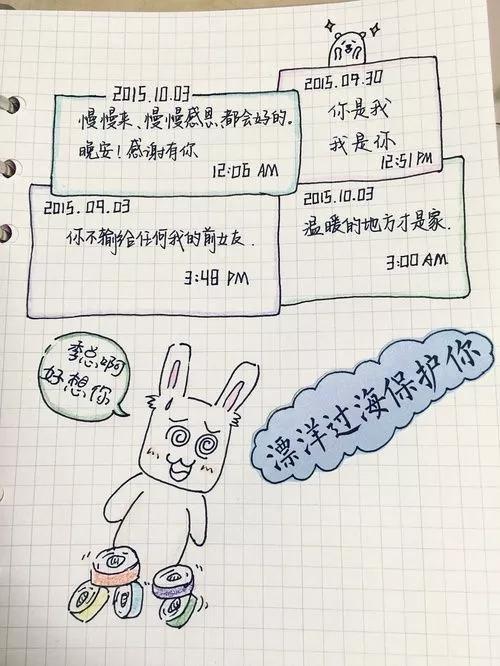 2015.10.03
慢慢来、慢慢感恩,都会好的。
晚安!感谢有你
12:06 AM
2015.09.30
你是我
我是你
12:51 PM
2015.09.03
你不输给任何我的前女友.
3:48 PM
2015.10.03
温暖的地方才是家.
3:00 AM
李总啊
好想你
漂洋过海保护你